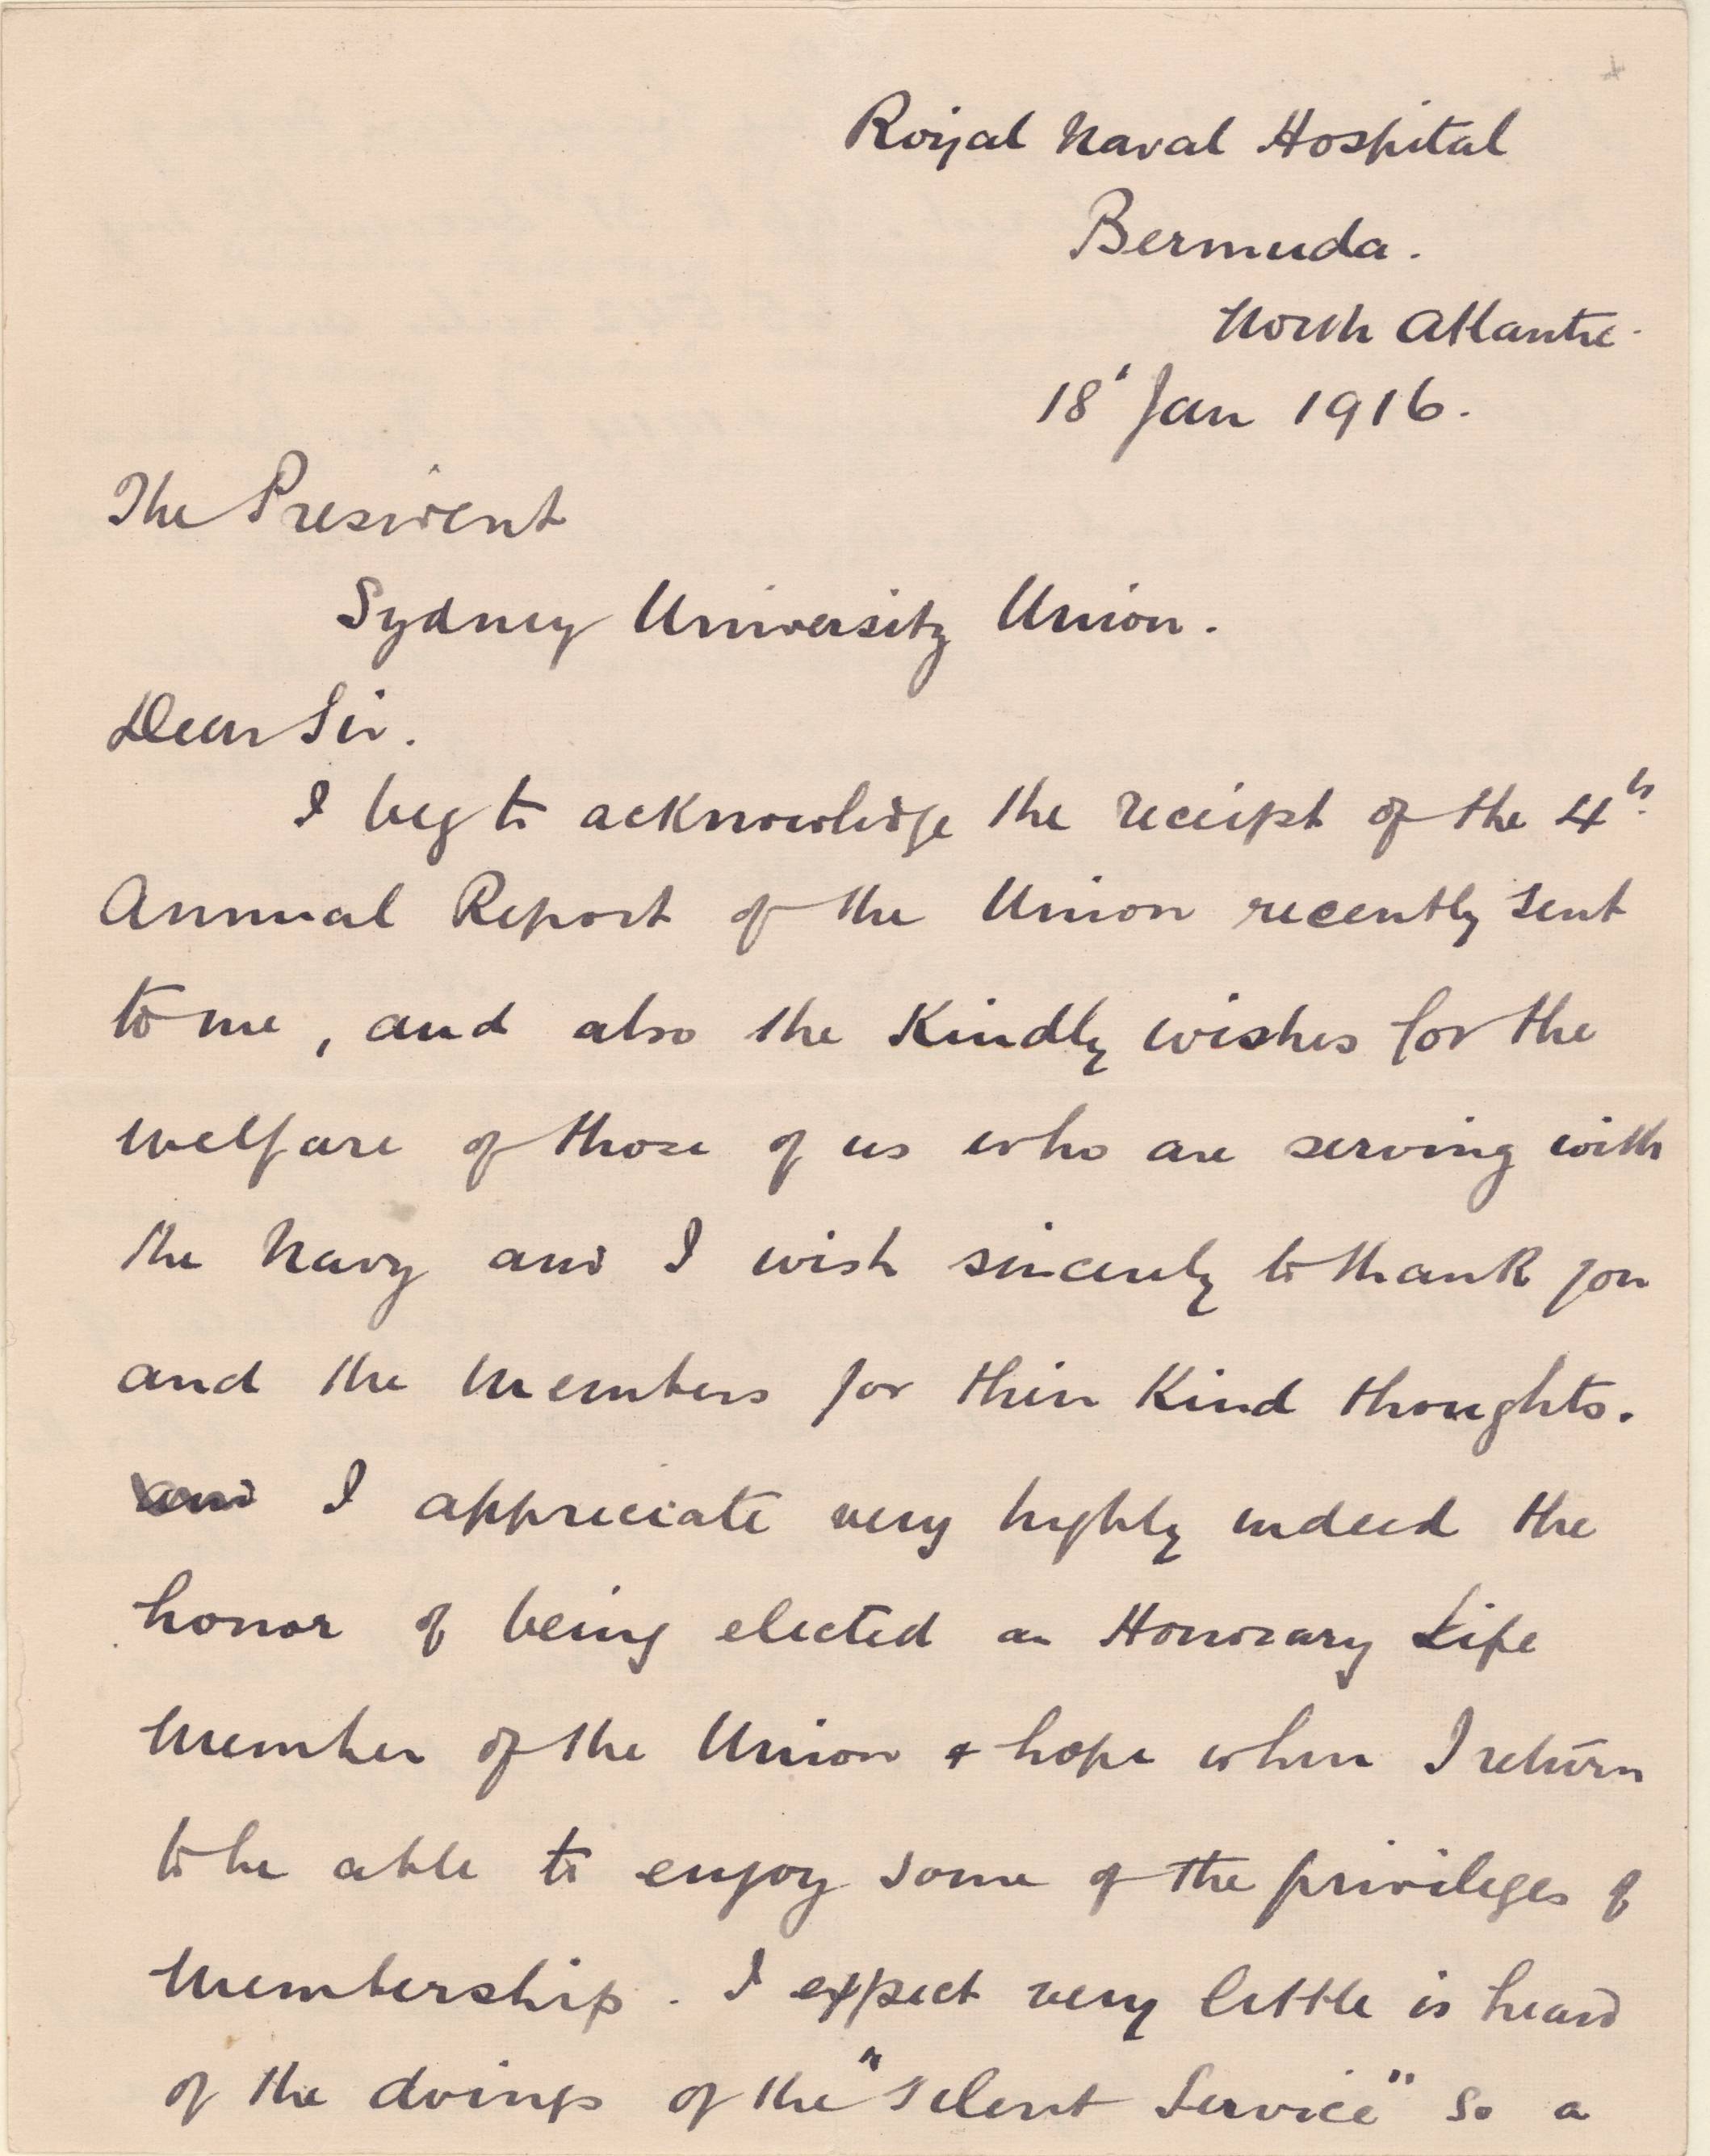 Royal Naval Hospital
Bermuda.
North Atlantic.
18' Jan 1916.
The President
Sydney University Union.
Dear Sir.
I beg to acknowledge the receipt of the 4th
Annual Report of the Union recently sent
to me, and also the Kindly wishes for the
welfare of those of us who are serving with
the Navy and I wish sincerely to thank you
and the Members for their Kind thoughts.
and I appreciate very highly indeed the
honor of being elected an Honorary Life
Member of the Union & hope when I return
to be able to enjoy some of the privileges of
Membership. I expect very little is heard
of the doings of the "Silent Service" so a